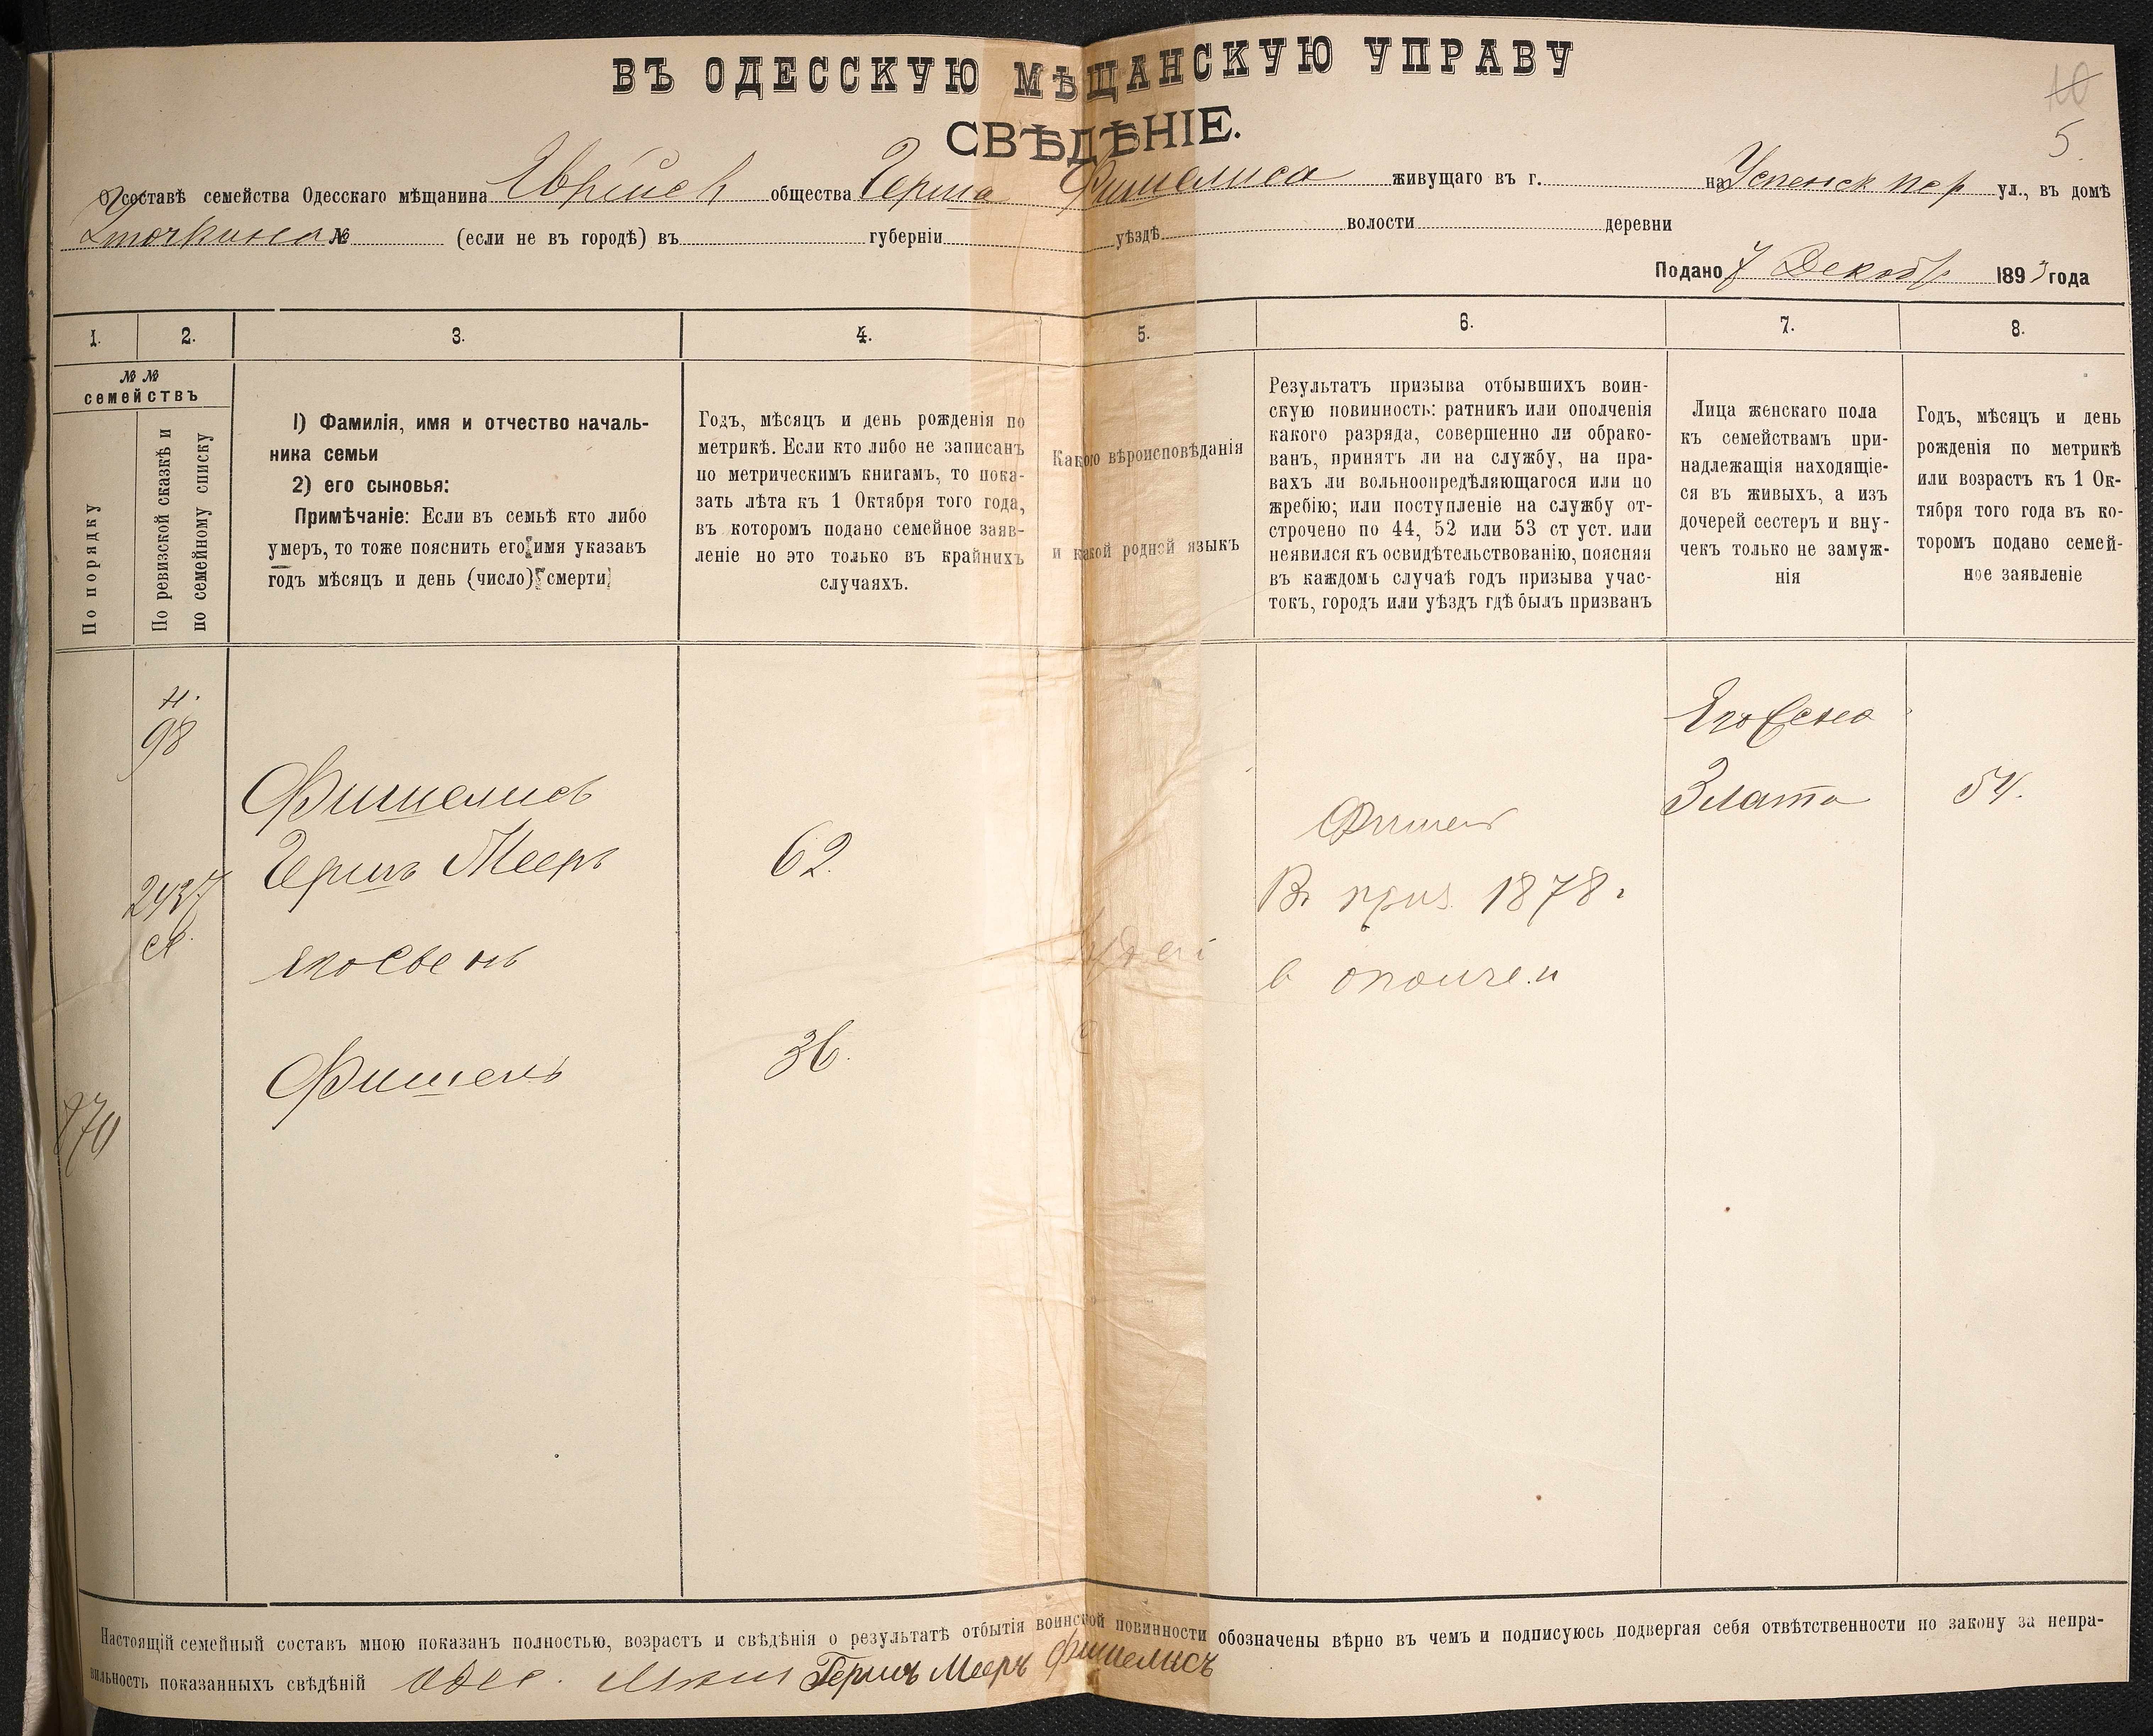 ВЪ ОДЕССКУЮ МѢЩАНСКУЮ УПРАВУ
10
СВѢДѢНІЕ.
5.
О составѣ семейства Одесскаго мѣщанина Еврейск общества Герша Фишелиса живущаго въ г. на Успенск пер ул., въ домѣ
№ (если не въ городѣ) въ губерніи уѣздѣ волости деревни
Подано 7 Декабр 1893 года
1. 2. 3. 4. 5. 6. 7. 8.
№ №
семействъ
По порядку
По ревизской сказкѣ и
по семейному списку
1) Фамилія, имя и отчество началь-
ника семьи
2) его сыновья:
Примѣчаніе: Если въ семьѣ кто либо
умеръ, то тоже пояснить его имя указавъ
годъ мѣсяцъ и день (число) смерти
Годъ, мѣсяцъ и день рожденія по
метрикѣ. Если кто либо не записанъ
по метрическимъ книгамъ, то пока-
зать лѣта къ 1 Октября того года,
въ которомъ подано семейное заяв-
леніе но это только въ крайнихъ
случаяхъ.
Какого вѣроисповѣданія
и какой родной языкъ
Результатъ призыва отбывшихъ воин-
скую повинность: ратникъ или ополченія
какого разряда, совершенно ли обрако-
ванъ, принятъ ли на службу, на пра-
вахъ ли вольноопредѣляющагося или по
жребію; или поступленіе на службу от-
строчено по 44, 52 или 53 ст уст. или
неявился къ освидѣтельствованію, поясняя
въ каждомъ случаѣ годъ призыва учас-
токъ, городъ или уѣздъ гдѣ былъ призванъ
Лица женскаго пола
къ семействамъ при-
надлежащія находящіе-
ся въ живыхъ, а изъ
дочерей сестеръ и вну-
чекъ только не замуж-
нія
Годъ, мѣсяцъ и день
рожденія по метрикѣ
или возрастъ къ 1 Ок-
тября того года въ ко-
торомъ подано семей-
ное заявленіе
н.
98
Фишелисъ
Гершъ Мееръ
62.
2437
его сынъ
Фишель
36.
870
Иудей
Фишель
Въ приз 1878 г
в ополчен
Его жена
Злата
54.
Настоящій семейный составъ мною показанъ полностью, возрастъ и свѣдѣнія о результатѣ отбытія воинской повинности обозначены вѣрно въ чемъ и подписуюсь подвергая себя отвѣтственности по закону за непра-
вильность показанныхъ свѣдѣній Одес. Гершъ Мееръ Фишелисъ